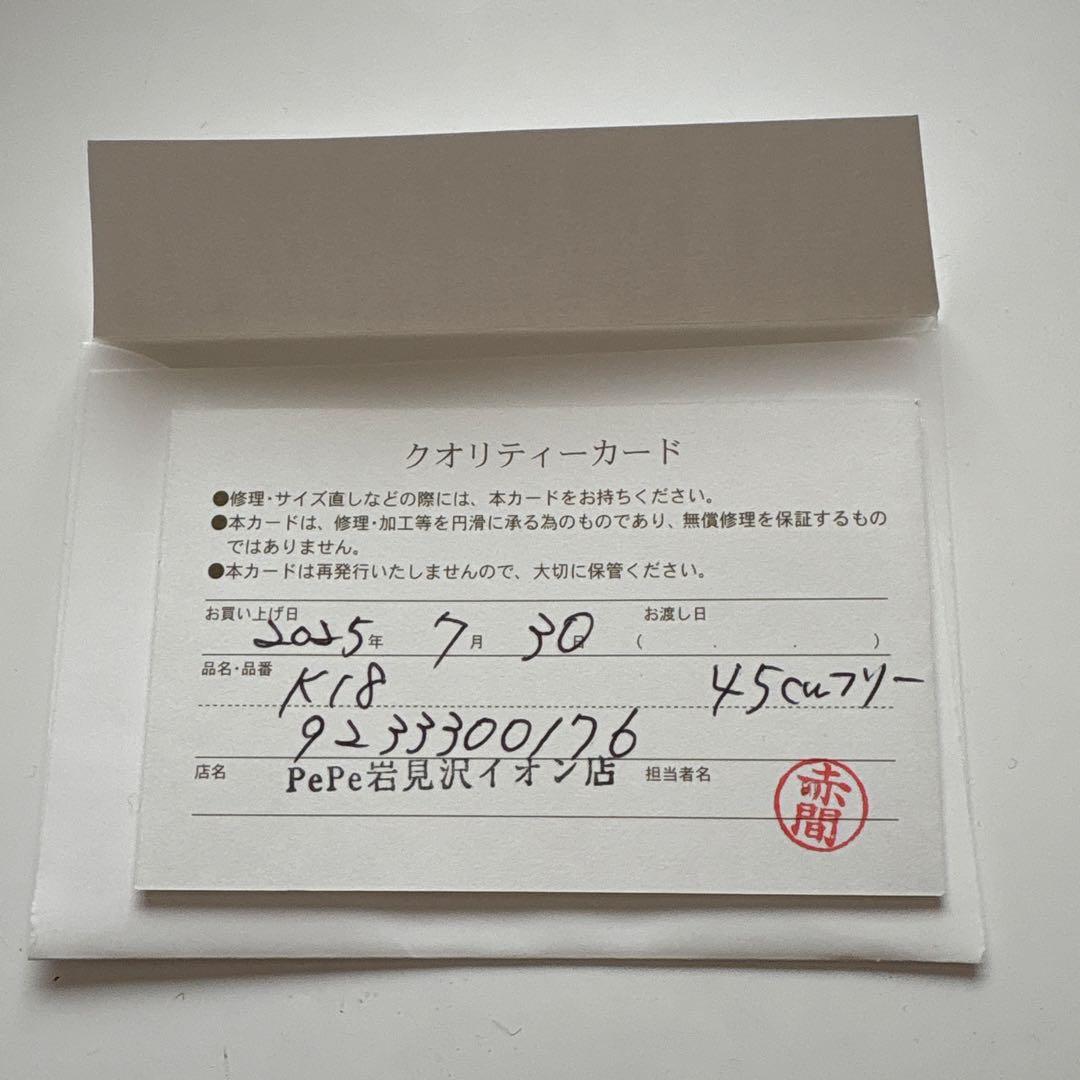 クオリティーカード
●修理・サイズ直しなどの際には、本カードをお持ちください。
●本カードは、修理・加工等を円滑に承る為のものであり、無償修理を保証するもの
ではありません。
●本カードは再発行いたしませんので、大切に保管ください。
お買い上げ日 2025年 7月 30日 お渡し日 ( . . )
品名・品番 K18 45cmフリー
9233300176
店名 PePe岩見沢イオン店 担当者名 赤間